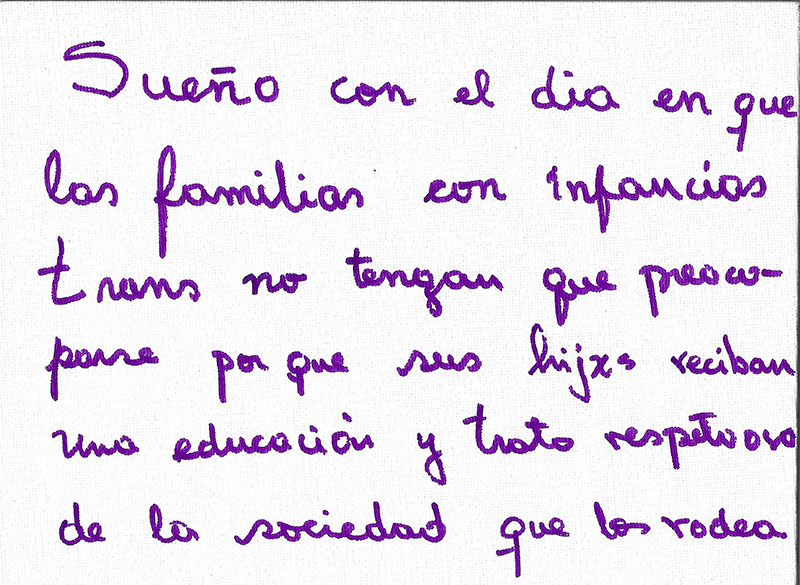 Sueño con el dia en que
las familias con infancias
trans no tengan que preocu-
parse por que sus hijxs reciban
una educación y trato respetuoso
de la sociedad que los rodea